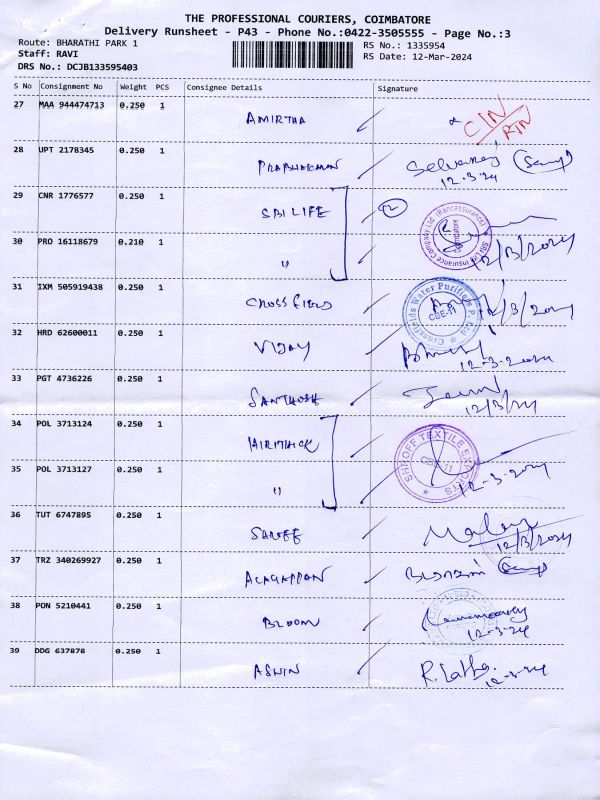 THE PROFESSIONAL COURIERS, COIMBATORE
Delivery Runsheet - P43 - Phone No.:0422-3505555 - Page No.:3
Route: BHARATHI PARK 1 RS No.: 1335954
Staff: RAVI RS Date: 12-Mar-2024
DRS No.: DCJB133595403
S No Consignment No Weight PCS Consignee Details Signature
27 MAA 944474713 0.250 1 AMIRTHA CIN/RTN
28 UPT 2178345 0.250 1 PRABHAKARAN Selvaraj
12.3.24
29 CNR 1776577 0.250 1 SBI LIFE 2
SBI Life Insurance Company Ltd. (Bancassurance) Coimbatore
12/3/2024
30 PRO 16118679 0.210 1 "
31 IXM 505919438 0.250 1 CROSSFIELD 12/3/2024
Crossfields Water Purifiers P. Ltd CBE-11
32 HRD 62600011 0.250 1 VIJAY 12-3-2024
33 PGT 4736226 0.250 1 SANTHOSH
12/3/24
34 POL 3713124 0.250 1
SHROFF TEXTILE EXPORTS CBE-11
35 POL 3713127 0.250 1 " 12-3-2024
36 TUT 6747895 0.250 1
12/3/2024
37 TRZ 340269927 0.250 1 ALAGAPPAN
38 PON 5210441 0.250 1 BLOOM
12-3-24
39 DDG 637878 0.250 1 ASWIN R. Latha
12-3-24